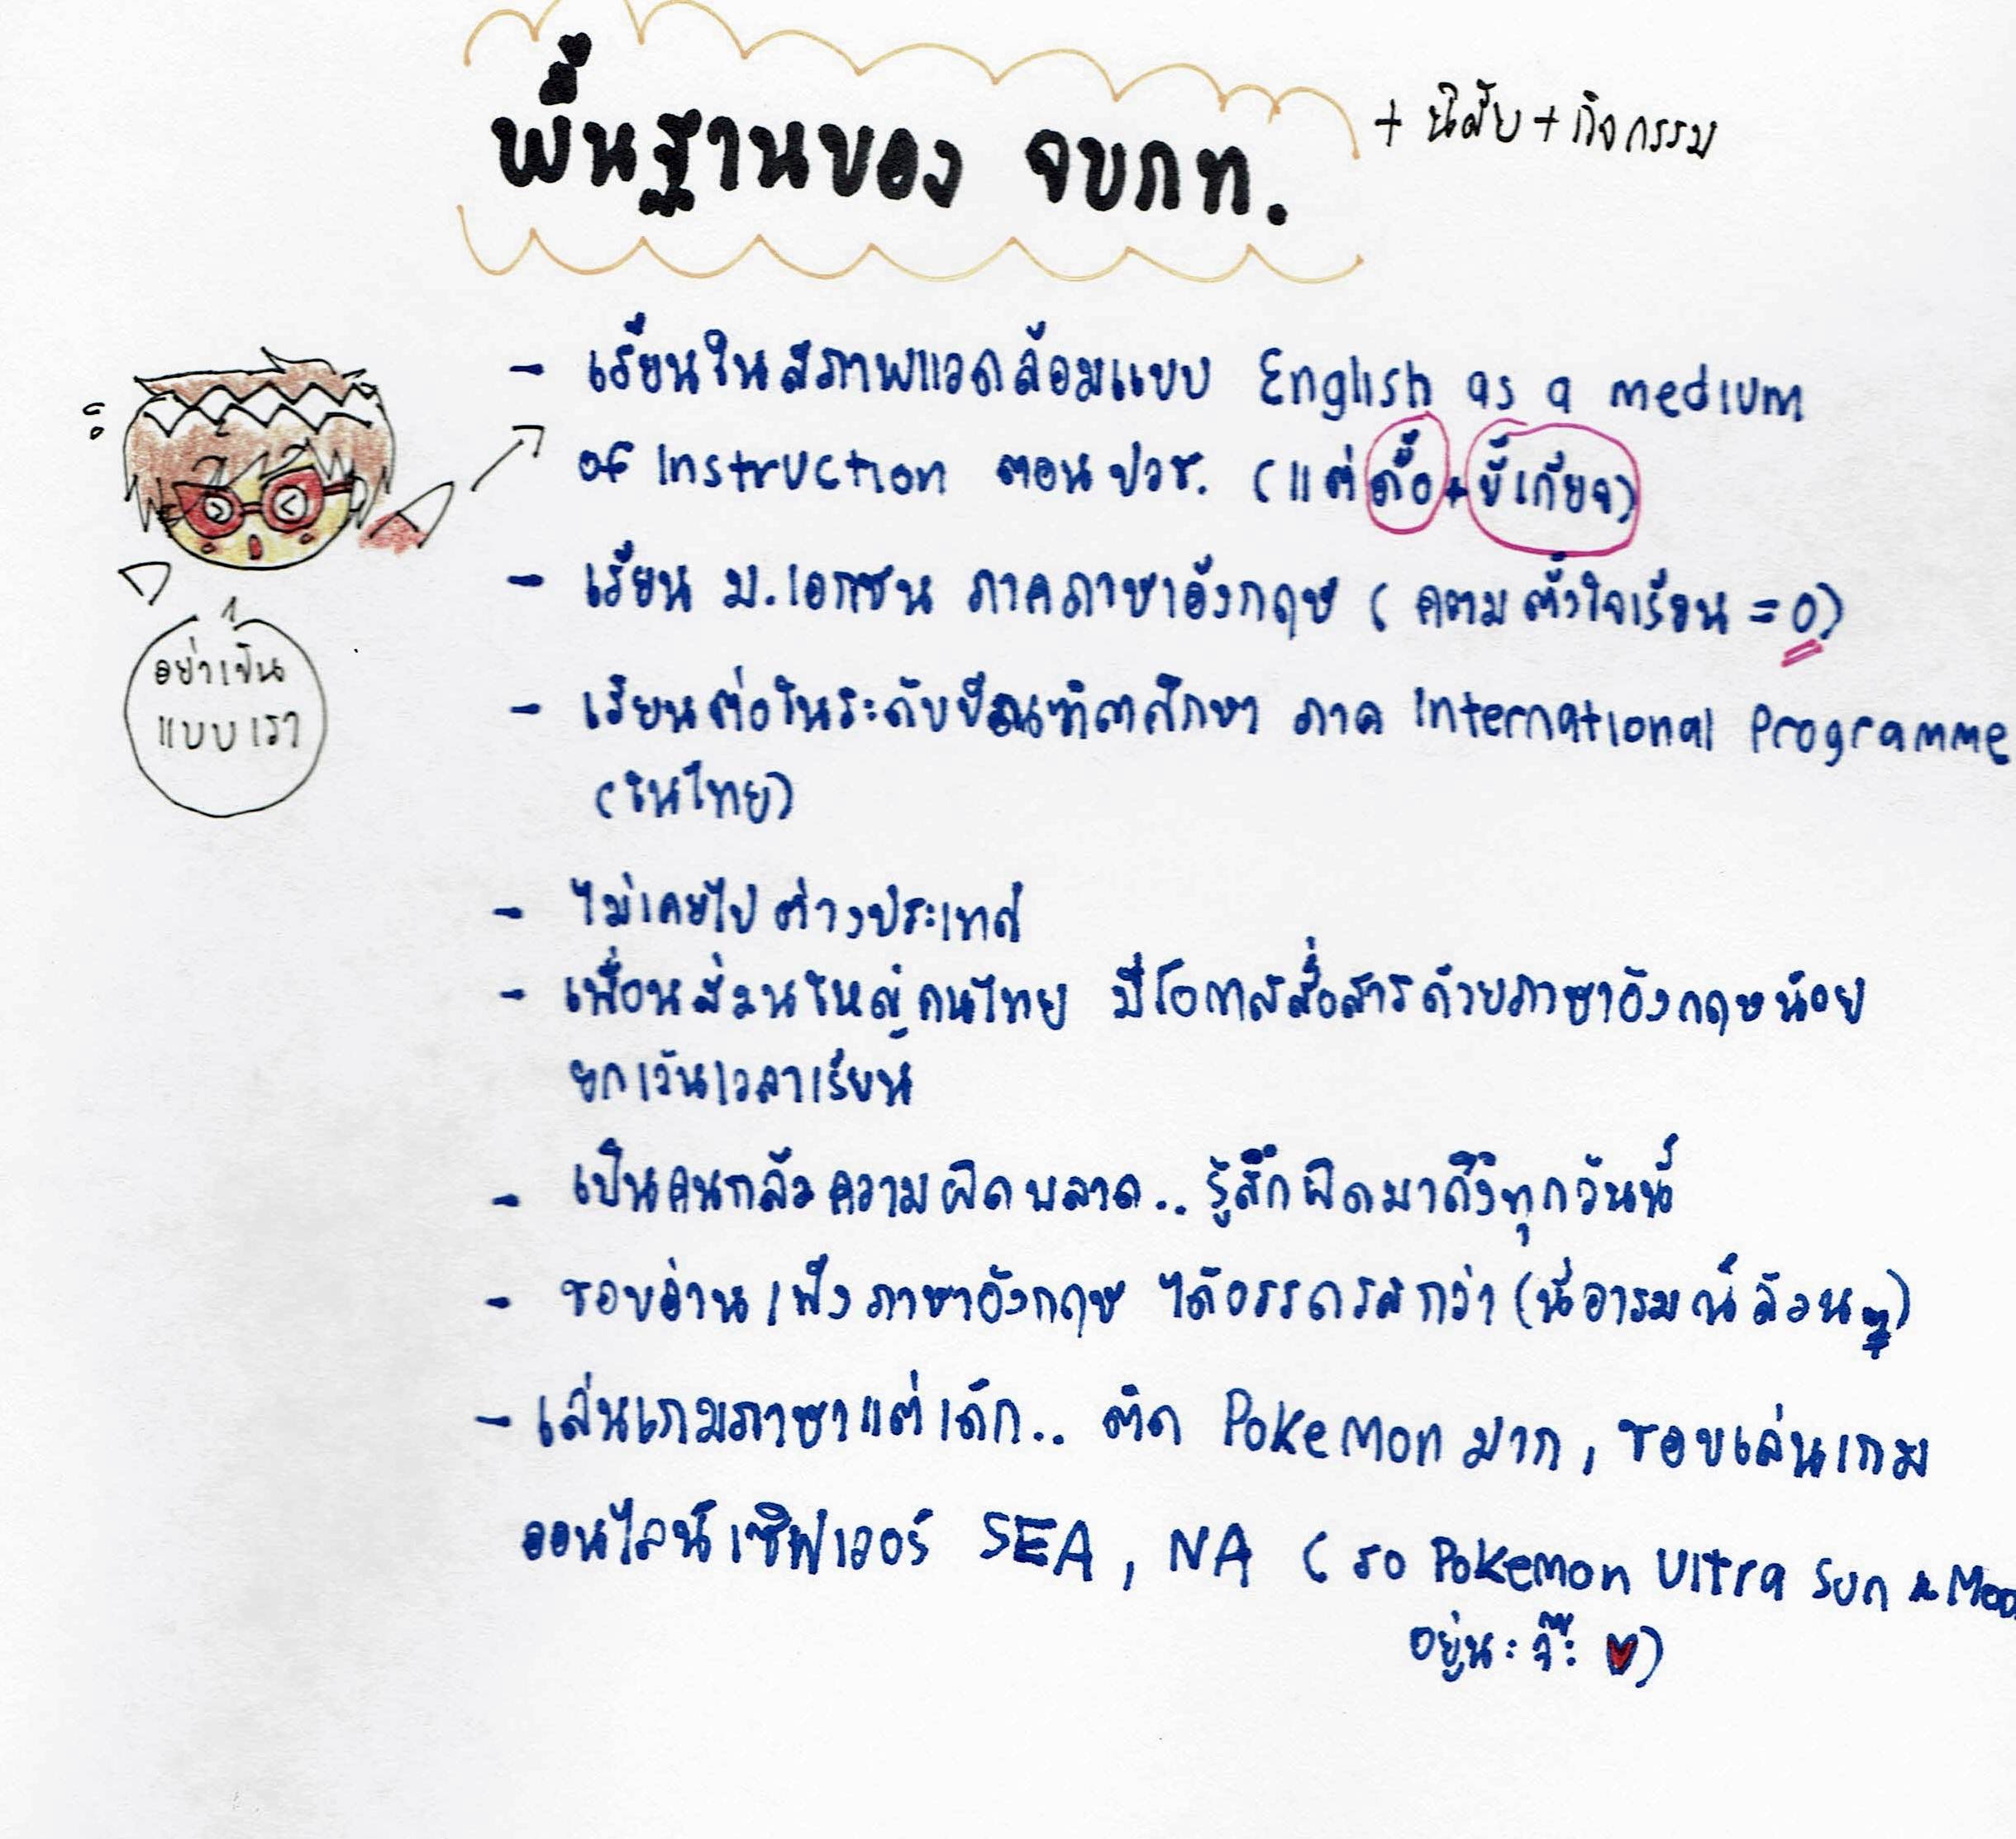 พื้นฐานของ จบกท.
+ นิสัย + กิจกรรม
- เรียนในสภาพแวดล้อมแบบ English as a medium
of Instruction ตอน ปวช. (แต่ ดื้อ + ขี้เกียจ)
- เรียน ม.เอกชน ภาคภาษาอังกฤษ (ความตั้งใจเรียน = 0)
- เรียนต่อในระดับบัณฑิตศึกษา ภาค International Programme
(ในไทย)
อย่าเป็น
แบบเรา
- ไม่เคยไปต่างประเทศ
- เพื่อนส่วนใหญ่คนไทย มีโอกาสสื่อสารด้วยภาษาอังกฤษน้อย
ยกเว้นเวลาเรียน
- เป็นคนกลัวความผิดพลาด.. รู้สึกผิดมาถึงทุกวันนี้
- ชอบอ่าน/ฟังภาษาอังกฤษ ได้อรรถรสกว่า (นี่อารมณ์ล้วนๆ)
- เล่นเกมภาษาแต่เด็ก.. ติด Pokemon มาก, ชอบเล่นเกม
ออนไลน์เซิฟเวอร์ SEA, NA (รอ Pokemon Ultra Sun & Moo
อยู่นะจ๊ะ ♥)